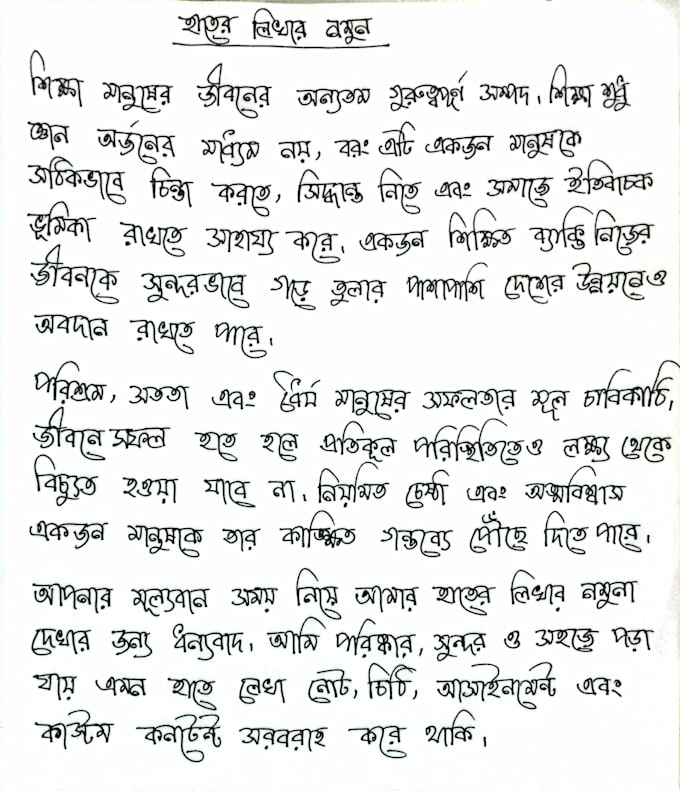 হাতের লিখার নমুন
শিক্ষা মানুষের জীবনের অন্যতম গুরুত্বপূর্ণ সম্পদ। শিক্ষা শুধু
জ্ঞান অর্জনের মাধ্যম নয়, বরং এটি একজন মানুষকে
সঠিকভাবে চিন্তা করতে, সিদ্ধান্ত নিতে এবং সমাজে ইতিবাচক
ভূমিকা রাখতে সাহায্য করে। একজন শিক্ষিত ব্যাক্তি নিজের
জীবনকে সুন্দরভাবে গড়ে তুলার পাশাপাশি দেশের উন্নয়নেও
অবদান রাখতে পারে।
পরিশ্রম, সততা এবং ধৈর্য মানুষের সফলতার মূল চাবিকাঠি।
জীবনে সফল হতে হলে প্রতিকূল পরিস্থিতিতেও লক্ষ্য থেকে
বিচ্যুত হওয়া যাবে না। নিয়মিত চেষ্টা এবং আত্মবিশ্বাস
একজন মানুষকে তার কাঙ্ক্ষিত গন্তব্যে পৌঁছে দিতে পারে।
আপনার মূল্যবান সময় নিয়ে আমার হাতের লিখার নমুনা
দেখার জন্য ধন্যবাদ। আমি পরিষ্কার, সুন্দর ও সহজে পড়া
যায় এমন হাতে লেখা নোট, চিঠি, আসাইনমেন্ট এবং
কাস্টম কনটেন্ট সরবরাহ করে থাকি।